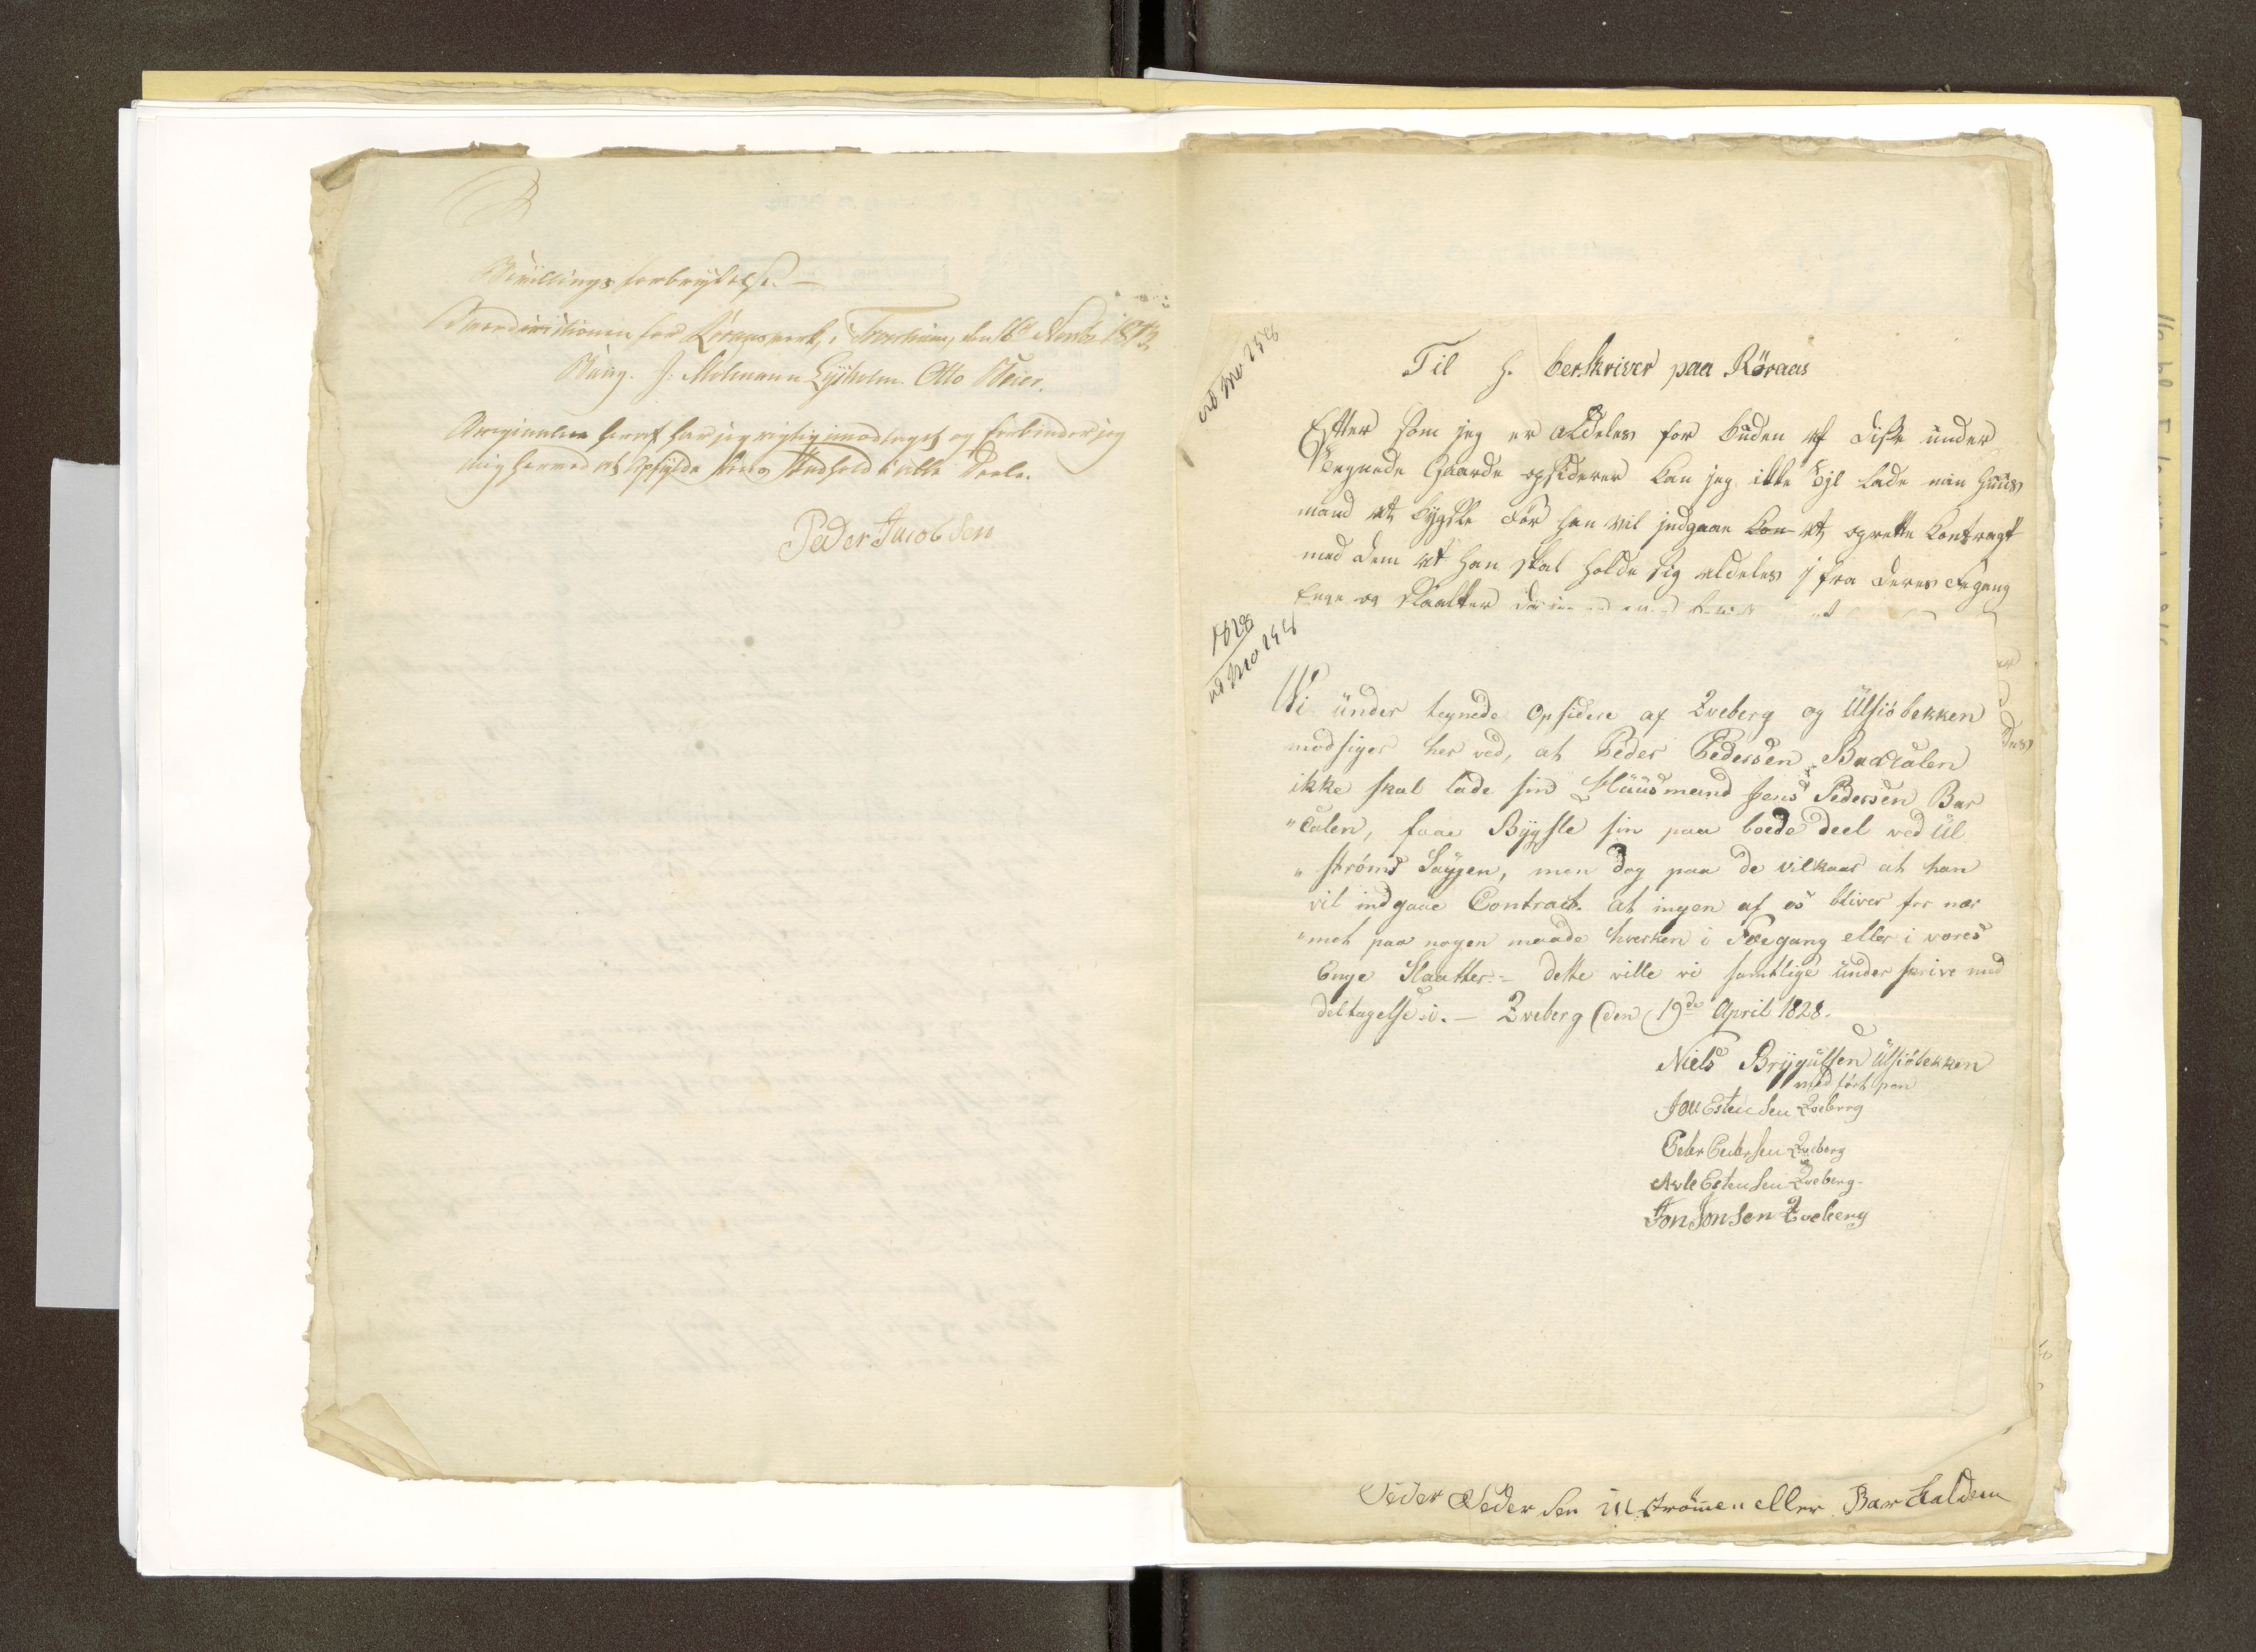 Bevillings forbrydelse. —
Participantskabet for Röraas verk, i Tronhiem, den 16d Novbr 1813.
J: Molmann Lysholm. Otto Beier.
Originalen heraf har jeg rigtig imodtaget og forbinder jeg
mig hermed at opfylde dens Indhold i alle Deele.
Peder Jacobsen
ad No 258
Til h. berskriver paa Röraas
Efter som jeg er aldeles for buden af diße under
tegnede Gaarde opsiderer kan jeg ikke lade min Huus
mand at bygsle før han vil indgaae at oprette Contragt
med dem at han skal holde sig aldeles i fra deres Fegang
Enge og Slaatter
1828
ad No 258
Wi under tegnede Opsidere af Zveberg og Ulsiöbekken
modsiger her ved, at Peder Pedersen Barcalen
ikke skal lade sin Huusmand Jens Pedersen Bar
"calen, faae Bygsle sin paa boede deel ved Ul
"ströms Saugen, men dog paa de vilkaar at han
vil indgaae Contract. at ingen af os bliver for nær
"met paa nogen maade hverken i Fægang eller i vores
Enge Slaatter. - dette ville vi samtlige under skrive med
deltagelse i. — Zveberg den 19de April 1828.
Niels Bryyulfsen Ulsiöbekken
med ført pen
Jon Estensen Zveberg
Peder Pedersen Zveberg
Arle Estensen Zveberg.
Jon Jonsen Zveberg
Peder Peder sen ulströmen eller Bar kaldem